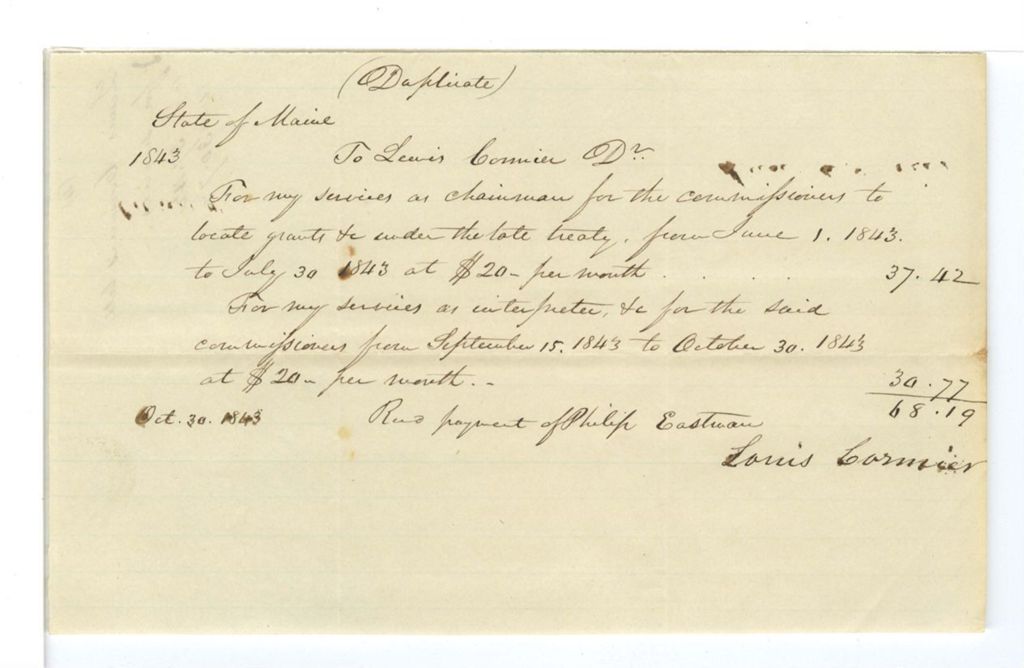 (Duplicate)
State of Maine
1843 To Lewis Cormier Dr.
For my services as chainman for the commissioners to
locate grants &c under the late treaty, from June 1. 1843.
to July 30 1843 at $20- per month . . . . 37.42
For my services as interpreter, &c for the said
commissioners from September 15. 1843 to October 30. 1843
at $20- per month. - 30.77
68.19
Oct. 30. 1843 Recd payment of Philip Eastman
Louis Cormier